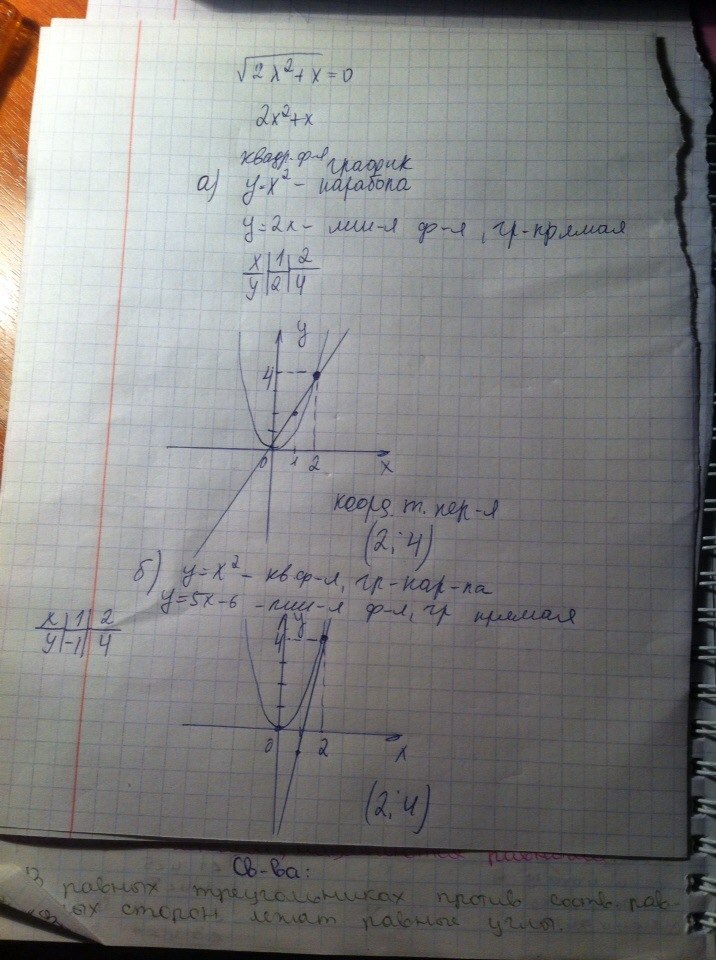 √2x²+x = 0
2x²+x
квадр. ф-я график
а) y=x² – парабола
y=2x – лин-я ф-я, гр-прямая
x | 1 | 2
y | 2 | 4
y
4
0 1 2 x
коорд. т. пер-я
(2; 4)
б) y=x² – кв ф-я, гр-пар-ла
y=5x-6 – лин-я ф-я, гр прямая
x | 1 | 2
y | -1 | 4
y
4
0 2 x
(2; 4)
Св-ва:
В равных треугольниках против соотв. рав-
ных сторон лежат равные углы.